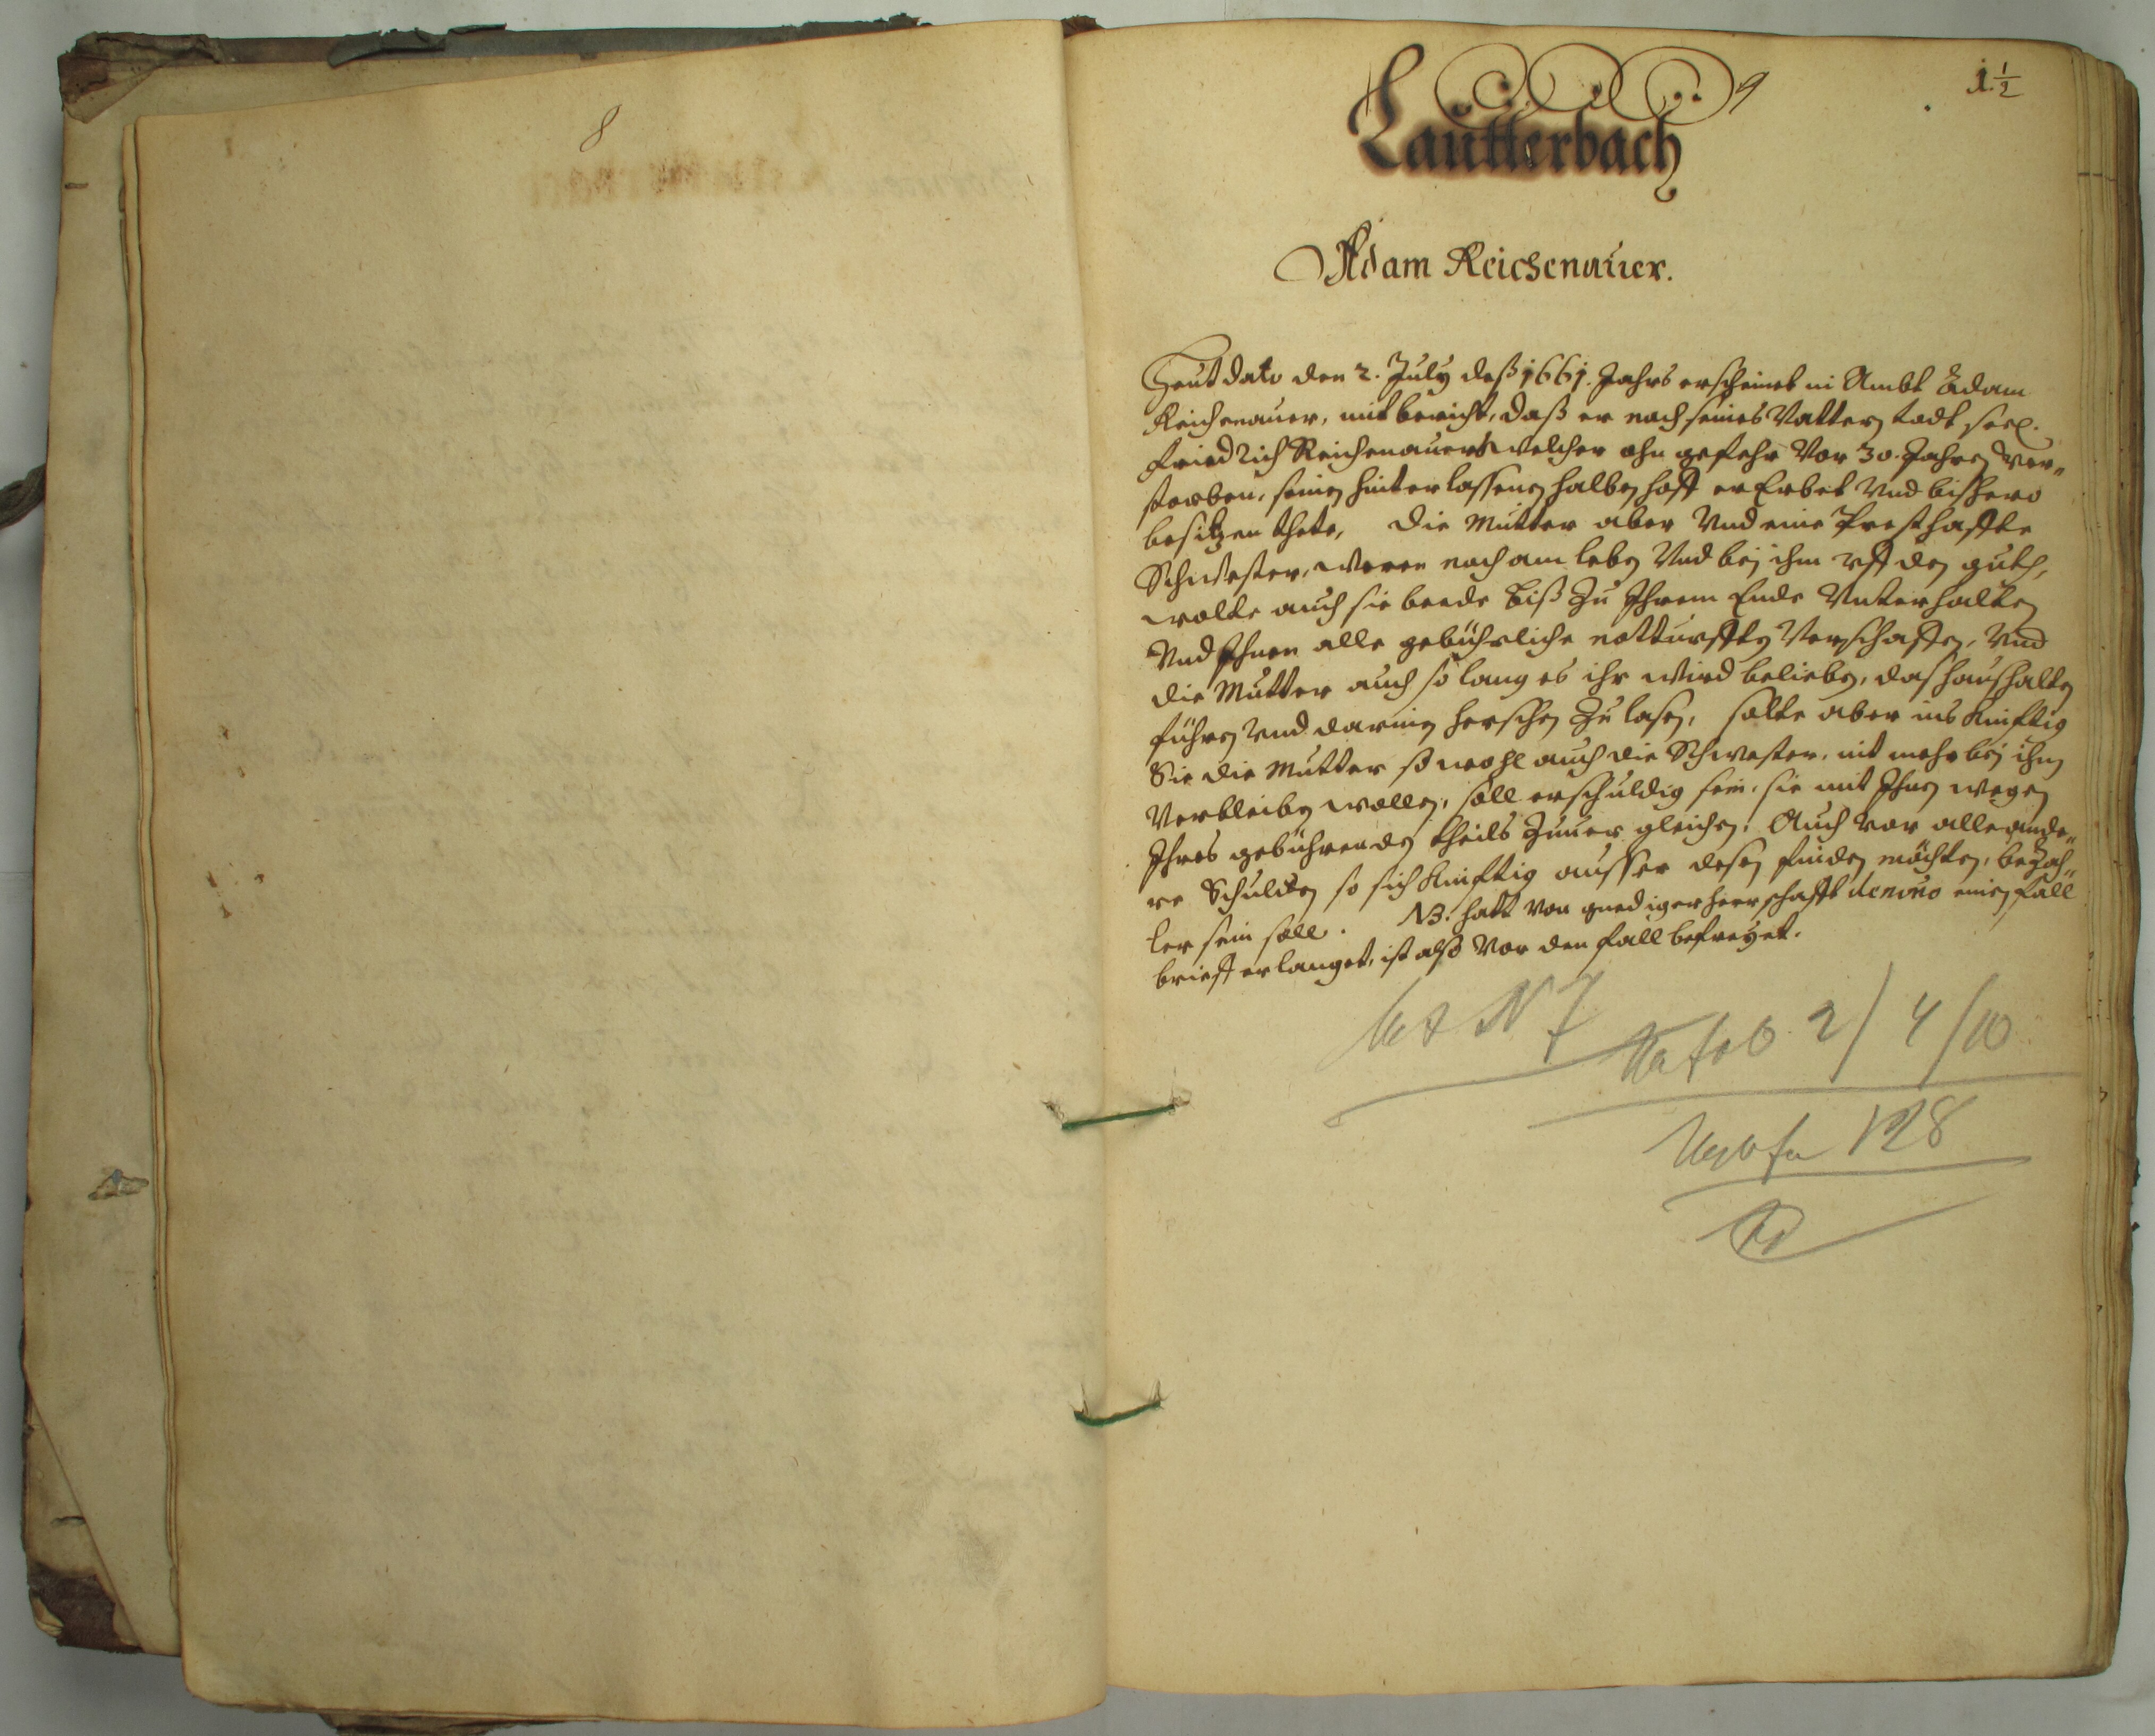 8
1 1/2
Lautterbach
Adam Reichenauer.
Heut dato den 2. July deß 1661. Jahrs erscheinet in Ambt Adam
Reichenauer, mit bericht, daß er nach seines Vatters todt seel.
Friedrich Reichenauers welcher ohn gefehr Vor 30. Jahren ver„
storben, seinen hinterlassenen halben hoff ererbet Und bißhero
besitzen thete, die Mutter aber Und eine Presthaffte
Schwester, weren noch am leben Und bej ihm uff den guth,
wolte auch sie beede biß Zu Ihrem Ende Unterhalten
Und Ihnen alle gebührliche notturfften Verschaffen, Und
die Mutter auch so lang es ihr wird belieben, das haushalten
führen Und darinen herschen Zu lasen, solte aber ins künfftig
Sie die Mutter so wohl auch die Schwester, nit mehr bej ihm
Verbleiben wollen, soll er schuldig sein, sie mit Ihnen wegen
Ihres gebührenden theils Zuuer gleichen, Auch vor alle ande„
re Schulden so sich künfftig ausser desen finden möchten, bezah„
ler sein soll. NB. hatt von gnediger herrschafft denouo einen fall
brieff erlanget, ist also Vor den fall befreyet.
N 7
2/4/10
128